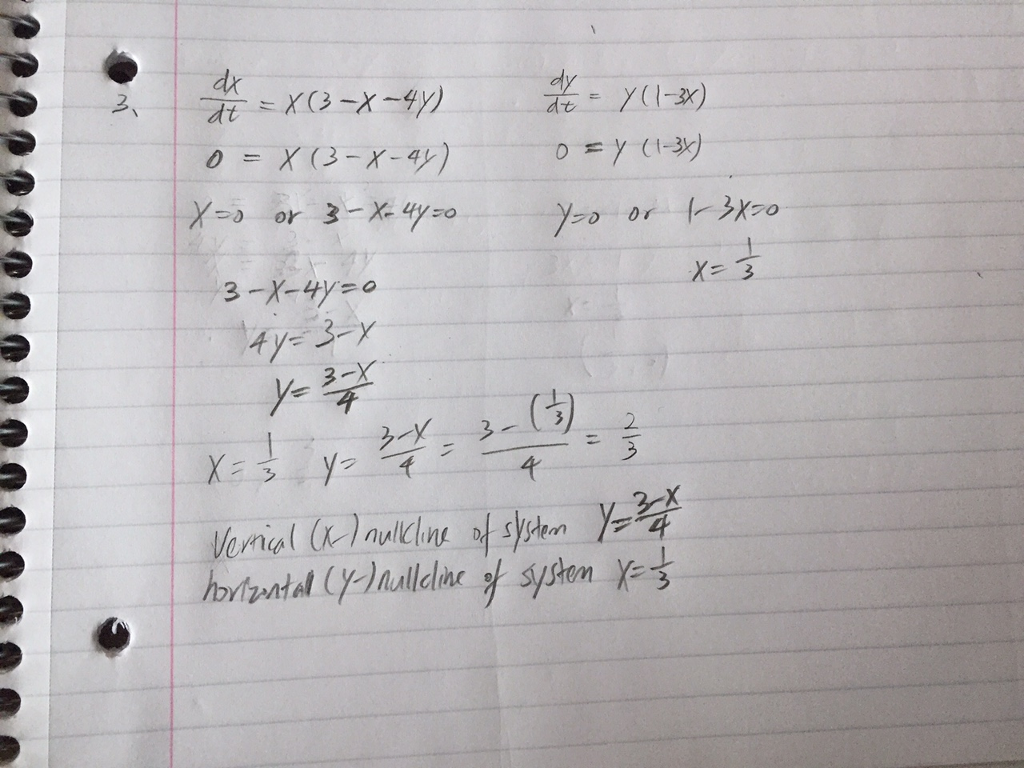 3. dx/dt = x(3-x-4y) dy/dt = y(1-3x)
0 = x(3-x-4y) 0 = y(1-3x)
x=0 or 3-x-4y=0 y=0 or 1-3x=0
x= 1/3
3-x-4y=0
4y=3-x
y= 3-x/4
x= 1/3 y= 3-x/4 = 3-(1/3)/4 = 2/3
vertical (x-) nullcline of system y= 3-x/4
horizontal (y-) nullcline of system x= 1/3